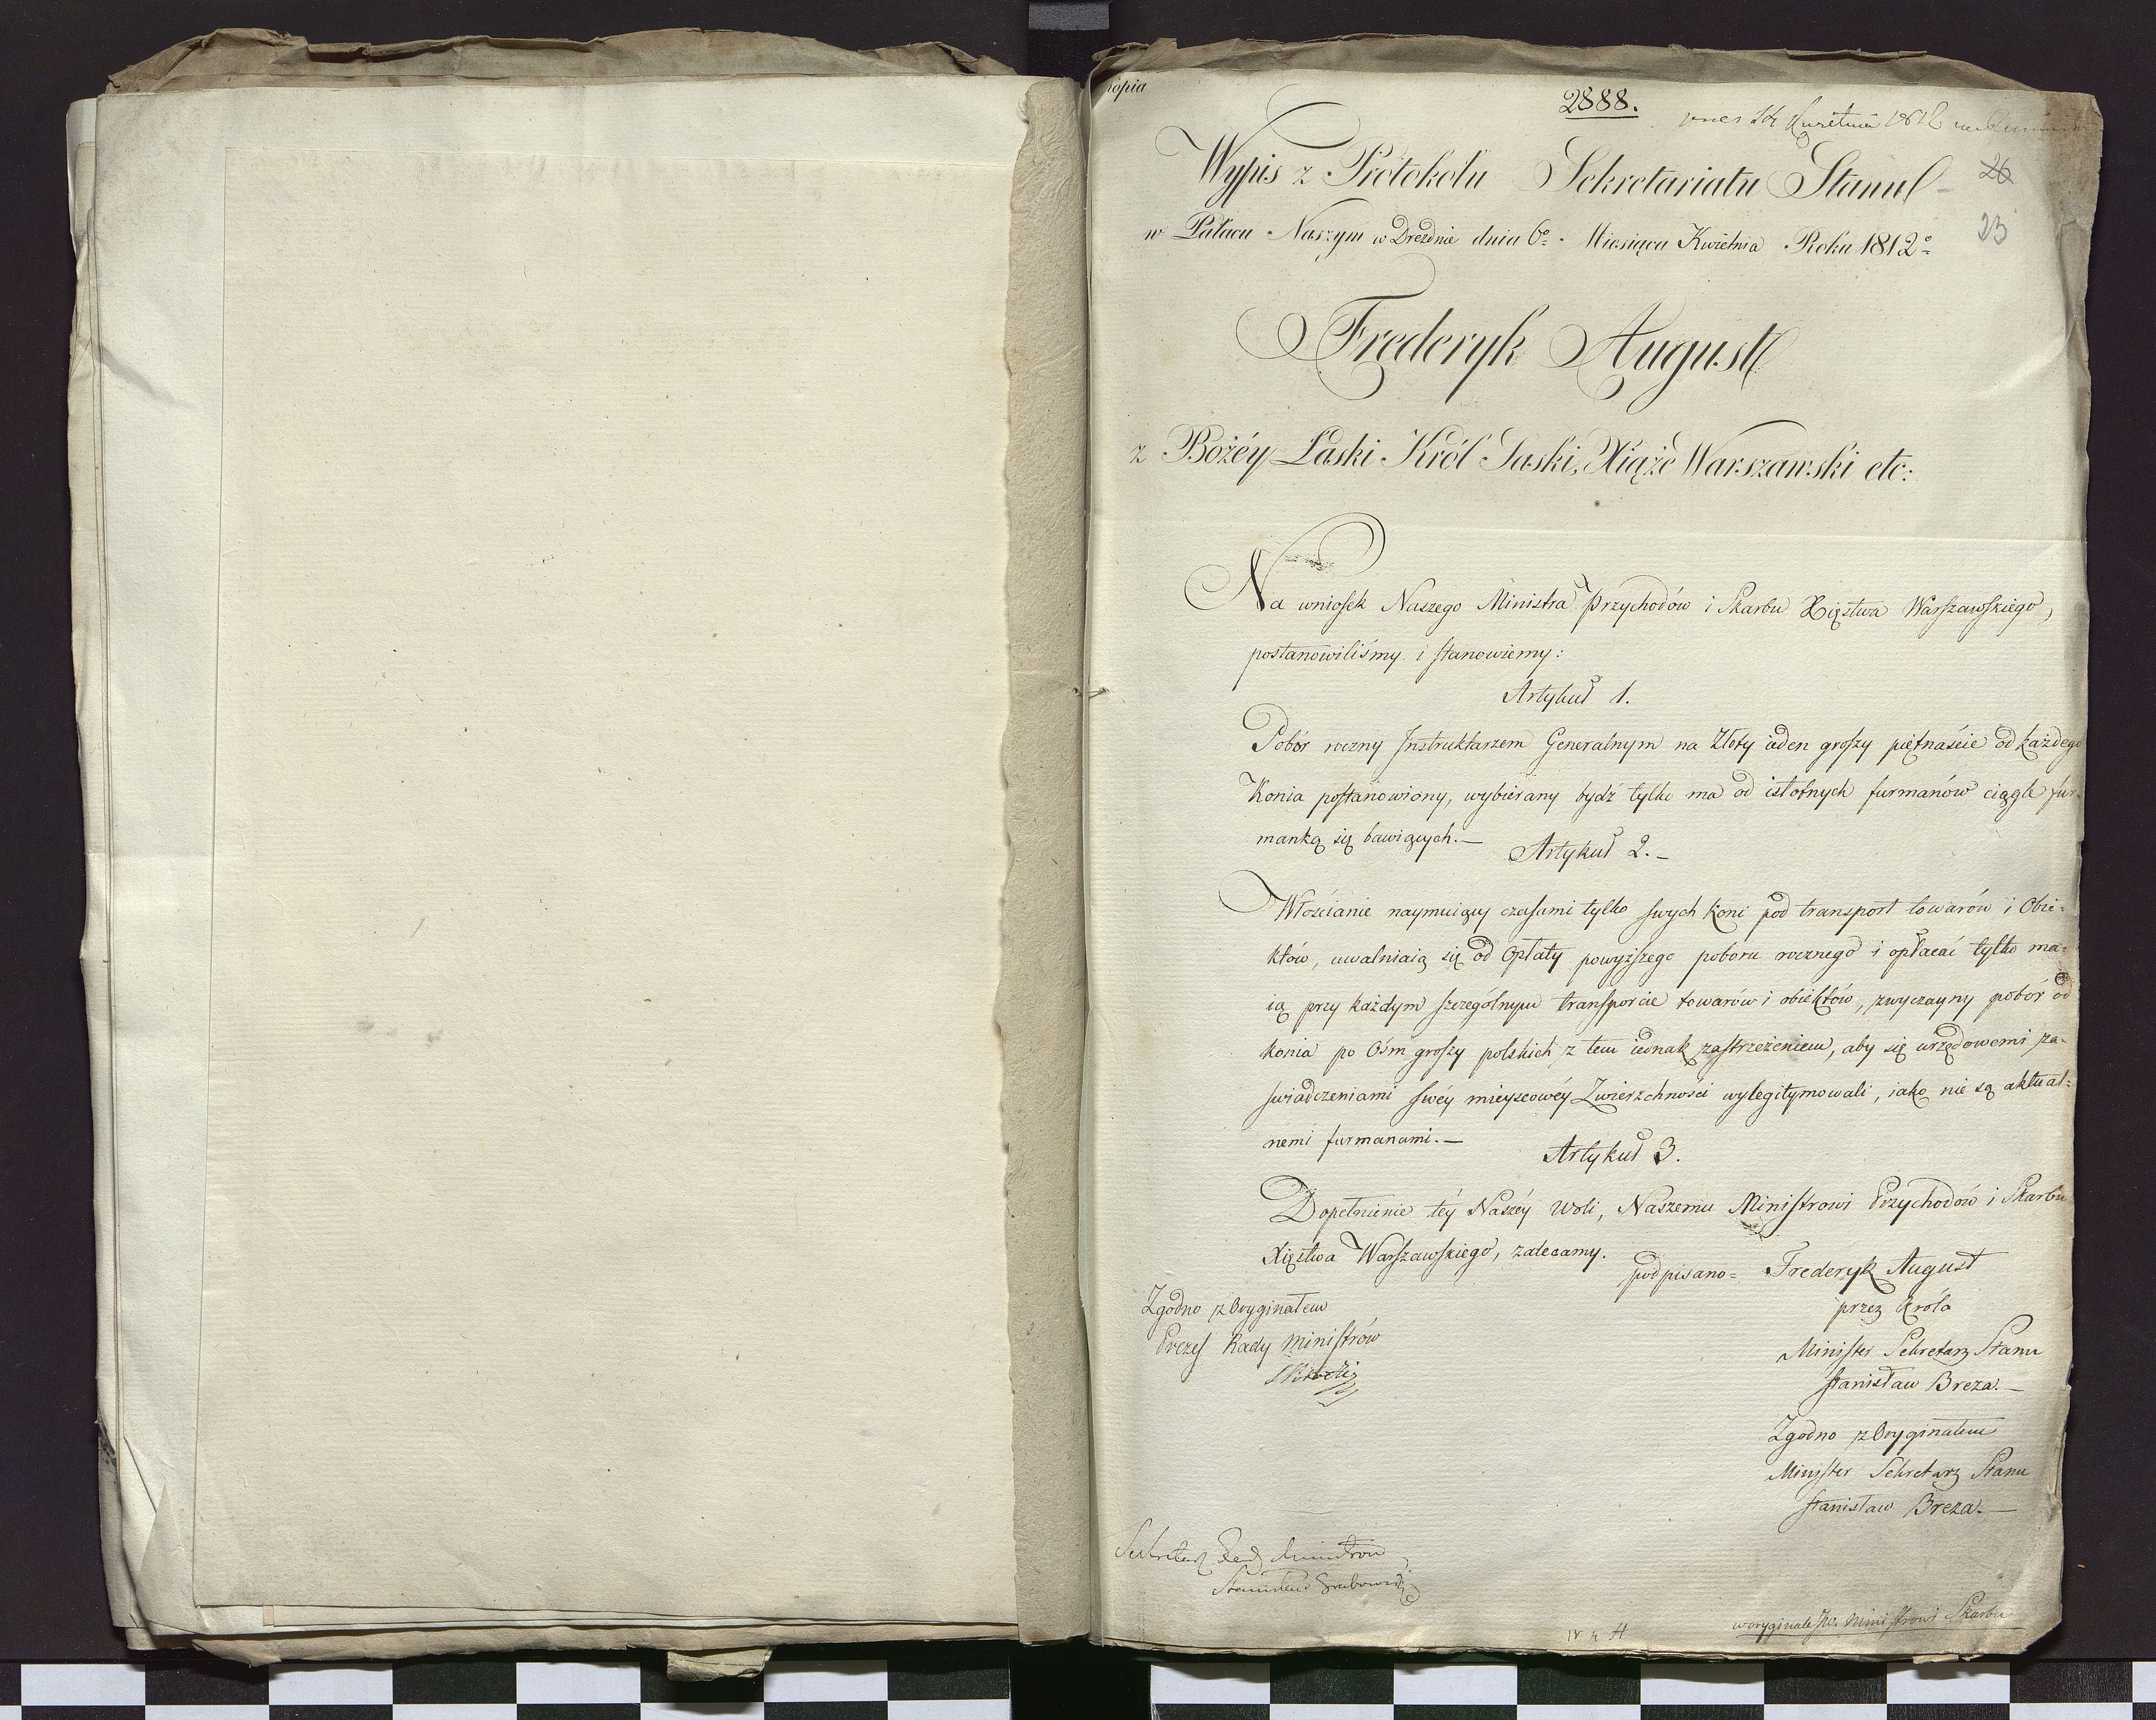 kopia
2888.
pres 14 Kwietnia 1812
Wypis z Protokołu Sekretariatu Stanu
26
w Pałacu Naszym w Dreznie dnia 6º Miesiąca Kwietnia Roku 1812º
23
Frederyk August
z Bożéy Łaski Król Saski, Xiąże Warszawski etc:
Na wniosek Naszego Ministra Przychodów i Skarbu Xięstwa Warszawskiego,
postanowiliśmy i stanowiemy:
Artykuł 1.
Pobór roczny Instruktarzem Generalnym na Złoty ieden groszy piętnaście od każdego
Konia postanowiony, wybierany bydź tylko ma od istotnych furmanów ciągle fur-
manką się bawiących.—
Artykuł 2.—
Włościanie naymuiący czasami tylko swych koni pod transport towarów i Obie-
któw, uwalniaią się od Opłaty powyższego poboru rocznego i opłacać tylko ma-
ią przy każdym szczególnym transporcie towarów i obiektów, zwyczayny pobór od
konia po Ośm groszy polskich z tem iednak zastrzeżeniem, aby się urzędowemi za-
świadczeniami swéy mieyscowéy Zwierzchności wylegitymowali, iako nie są aktual-
nemi furmanami.—
Artykuł 3.
Dopełnienie téy Naszéy Woli, Naszemu Ministrowi Przychodów i Skarbu
Xięstwa Warszawskiego, zalecamy.
podpisano= Frederyk August
przez Króla
Minister Sekretarz Stanu
Stanisław Breza.—
Zgodno z Oryginałem
Prezes Rady Ministrów
Zgodno z Oryginałem
Minister Sekretarz Stanu
Stanisław Breza.—
Sekretarz Rady Ministrów
Stanisław Grabowski
w oryginale JW. Ministrowi Skarbu